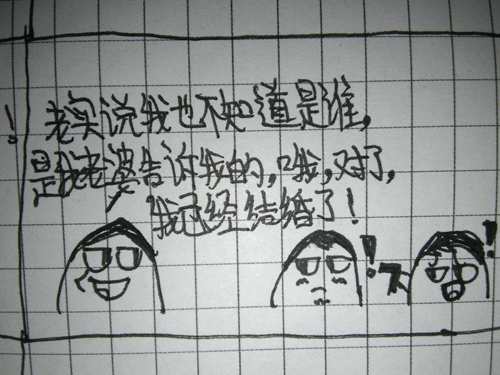 !
老实说我也不知道是谁,
是我老婆告诉我的,哦,对了,
我已经结婚了!
!
!